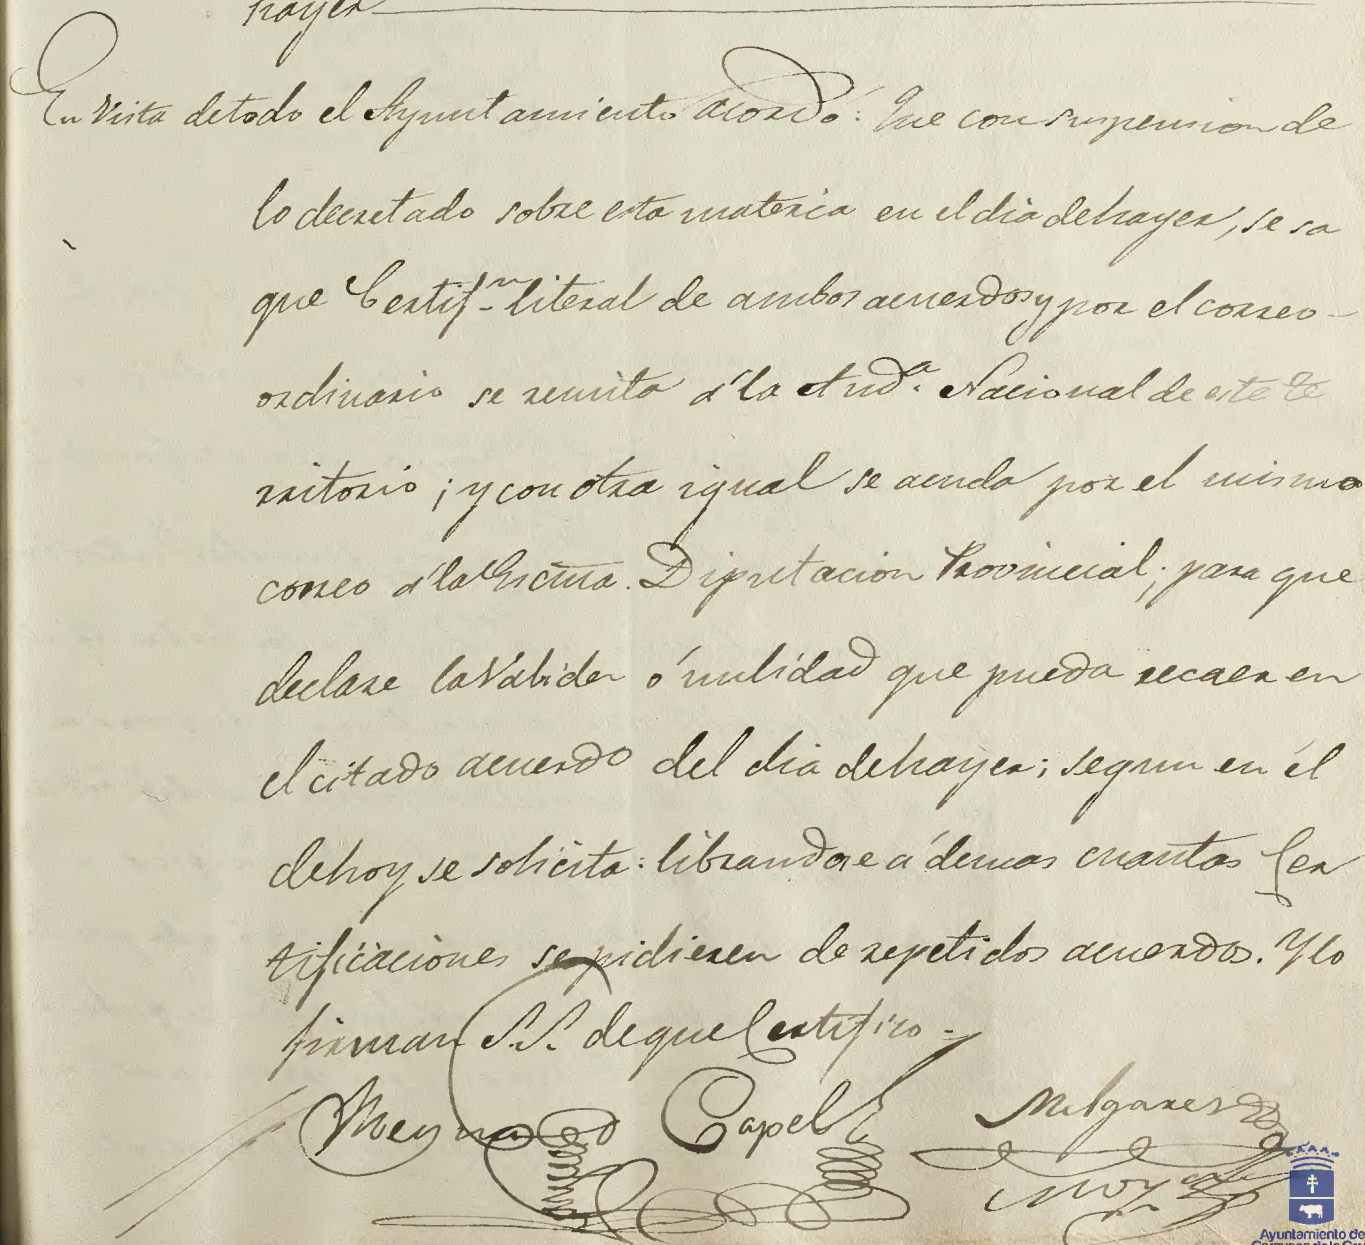 hayer
En Vista detodo el Ayuntamiento acordó: Que con suspension de
lo decretado sobre esta materia en el dia dehayer, se sa
que Certif.on literal de ambos acuerdos y por el correo
ordinario se remita á la Aud.a Nacional de este te
rritorio; y con otra igual se acuda por el mismo
correo á la Escma. Diputacion Provincial; para que
declare la Válidez ó nulidad que pueda recaer en
el citado acuerdo del dia dehayer; segun en él
dehoy se solicita: librandose ádemas cuantas Cer
tificaciones se pidieren de repetidos acuerdos. Y lo
firman S.S. deque Certifico.
Reynado Capel Melgares
Moya
Ayuntamiento de
Caravaca de la Cruz